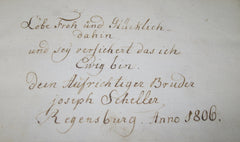 Lebe Froh und Glücklich
dahin
und sey versichert das ich
Ewig bin.
dein Aufrichtiger Bruder
joseph Scheller
Regensburg. Anno 1806.